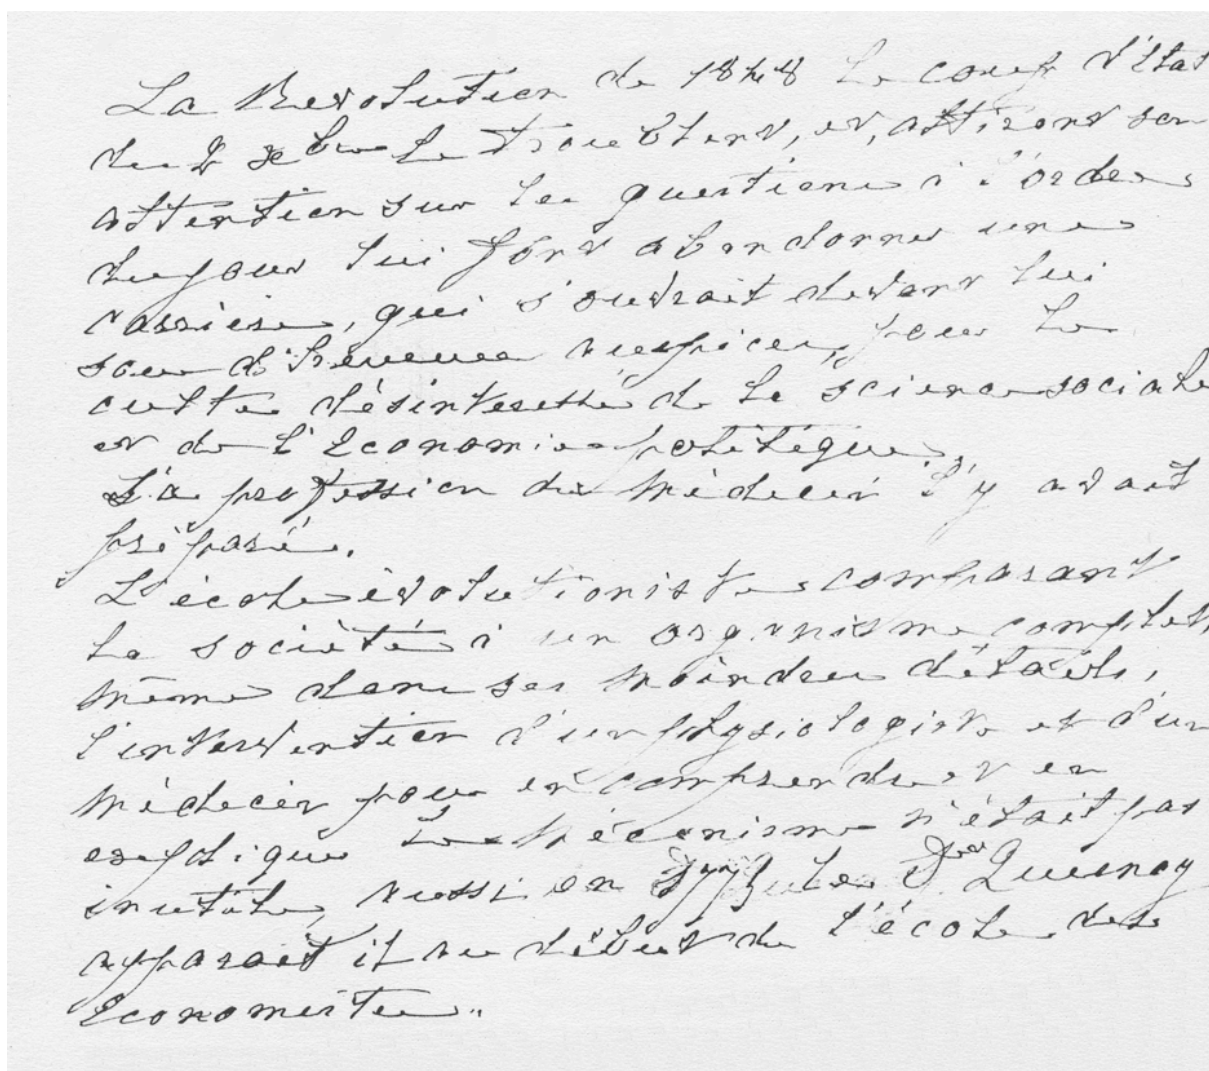 La Révolution de 1848 le coup d'État
du 2 Xbre le troublent, et, attirant son
attention sur les questions à l'ordre
du jour lui font abandonner une
carrière, qui s'ouvrait devant lui
sous d'heureux auspices, pour le
culte désintéressé de la science sociale
et de l'Economie politique.
Sa profession de médecin l'y avait
préparé.
L'école évolutioniste comparant
la société à un organisme complet
même dans ses moindres détails,
l'intervention d'un physiologiste et d'un
médecin pour en comprendre et en
expliquer le mécanisme n'était pas
inutile, aussi en le Dr Quesnay
apparait il au début de l'école des
Economistes.